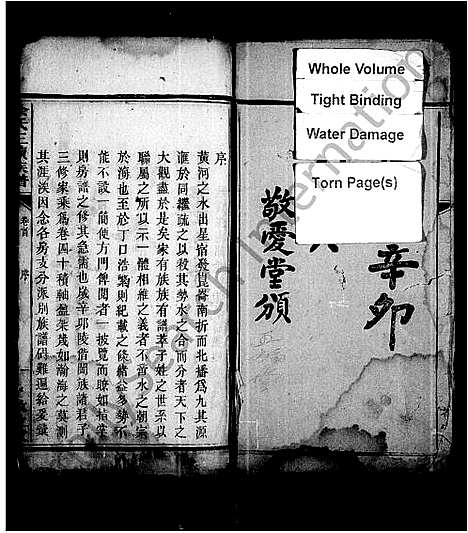 Whole Volume
Tight Binding
Water Damage
Torn Page(s)
辛卯
敬愛堂頒
序
黃河之水出星宿發崑崙南折而北播爲九其源
滙於同繼疏之以殺其勢水之合而分者天下之
大觀盡於是矣家有族族有譜萃子姓之世系以
聯屬之所以示一體相維之義者不啻水之朝宗
於海也至於丁口浩繁則紀載之條緒益多勢不
能不設一簡使方門俾閱者一披覽而瞭如指掌
則房譜之修其急需也歲辛卯陵偕闔族諸君子
三修家乘爲卷四十積軸盈架茂如瀚海之莫測
其涯涘因念各房支分派別族譜碍難遍給爰僉
卷首
序